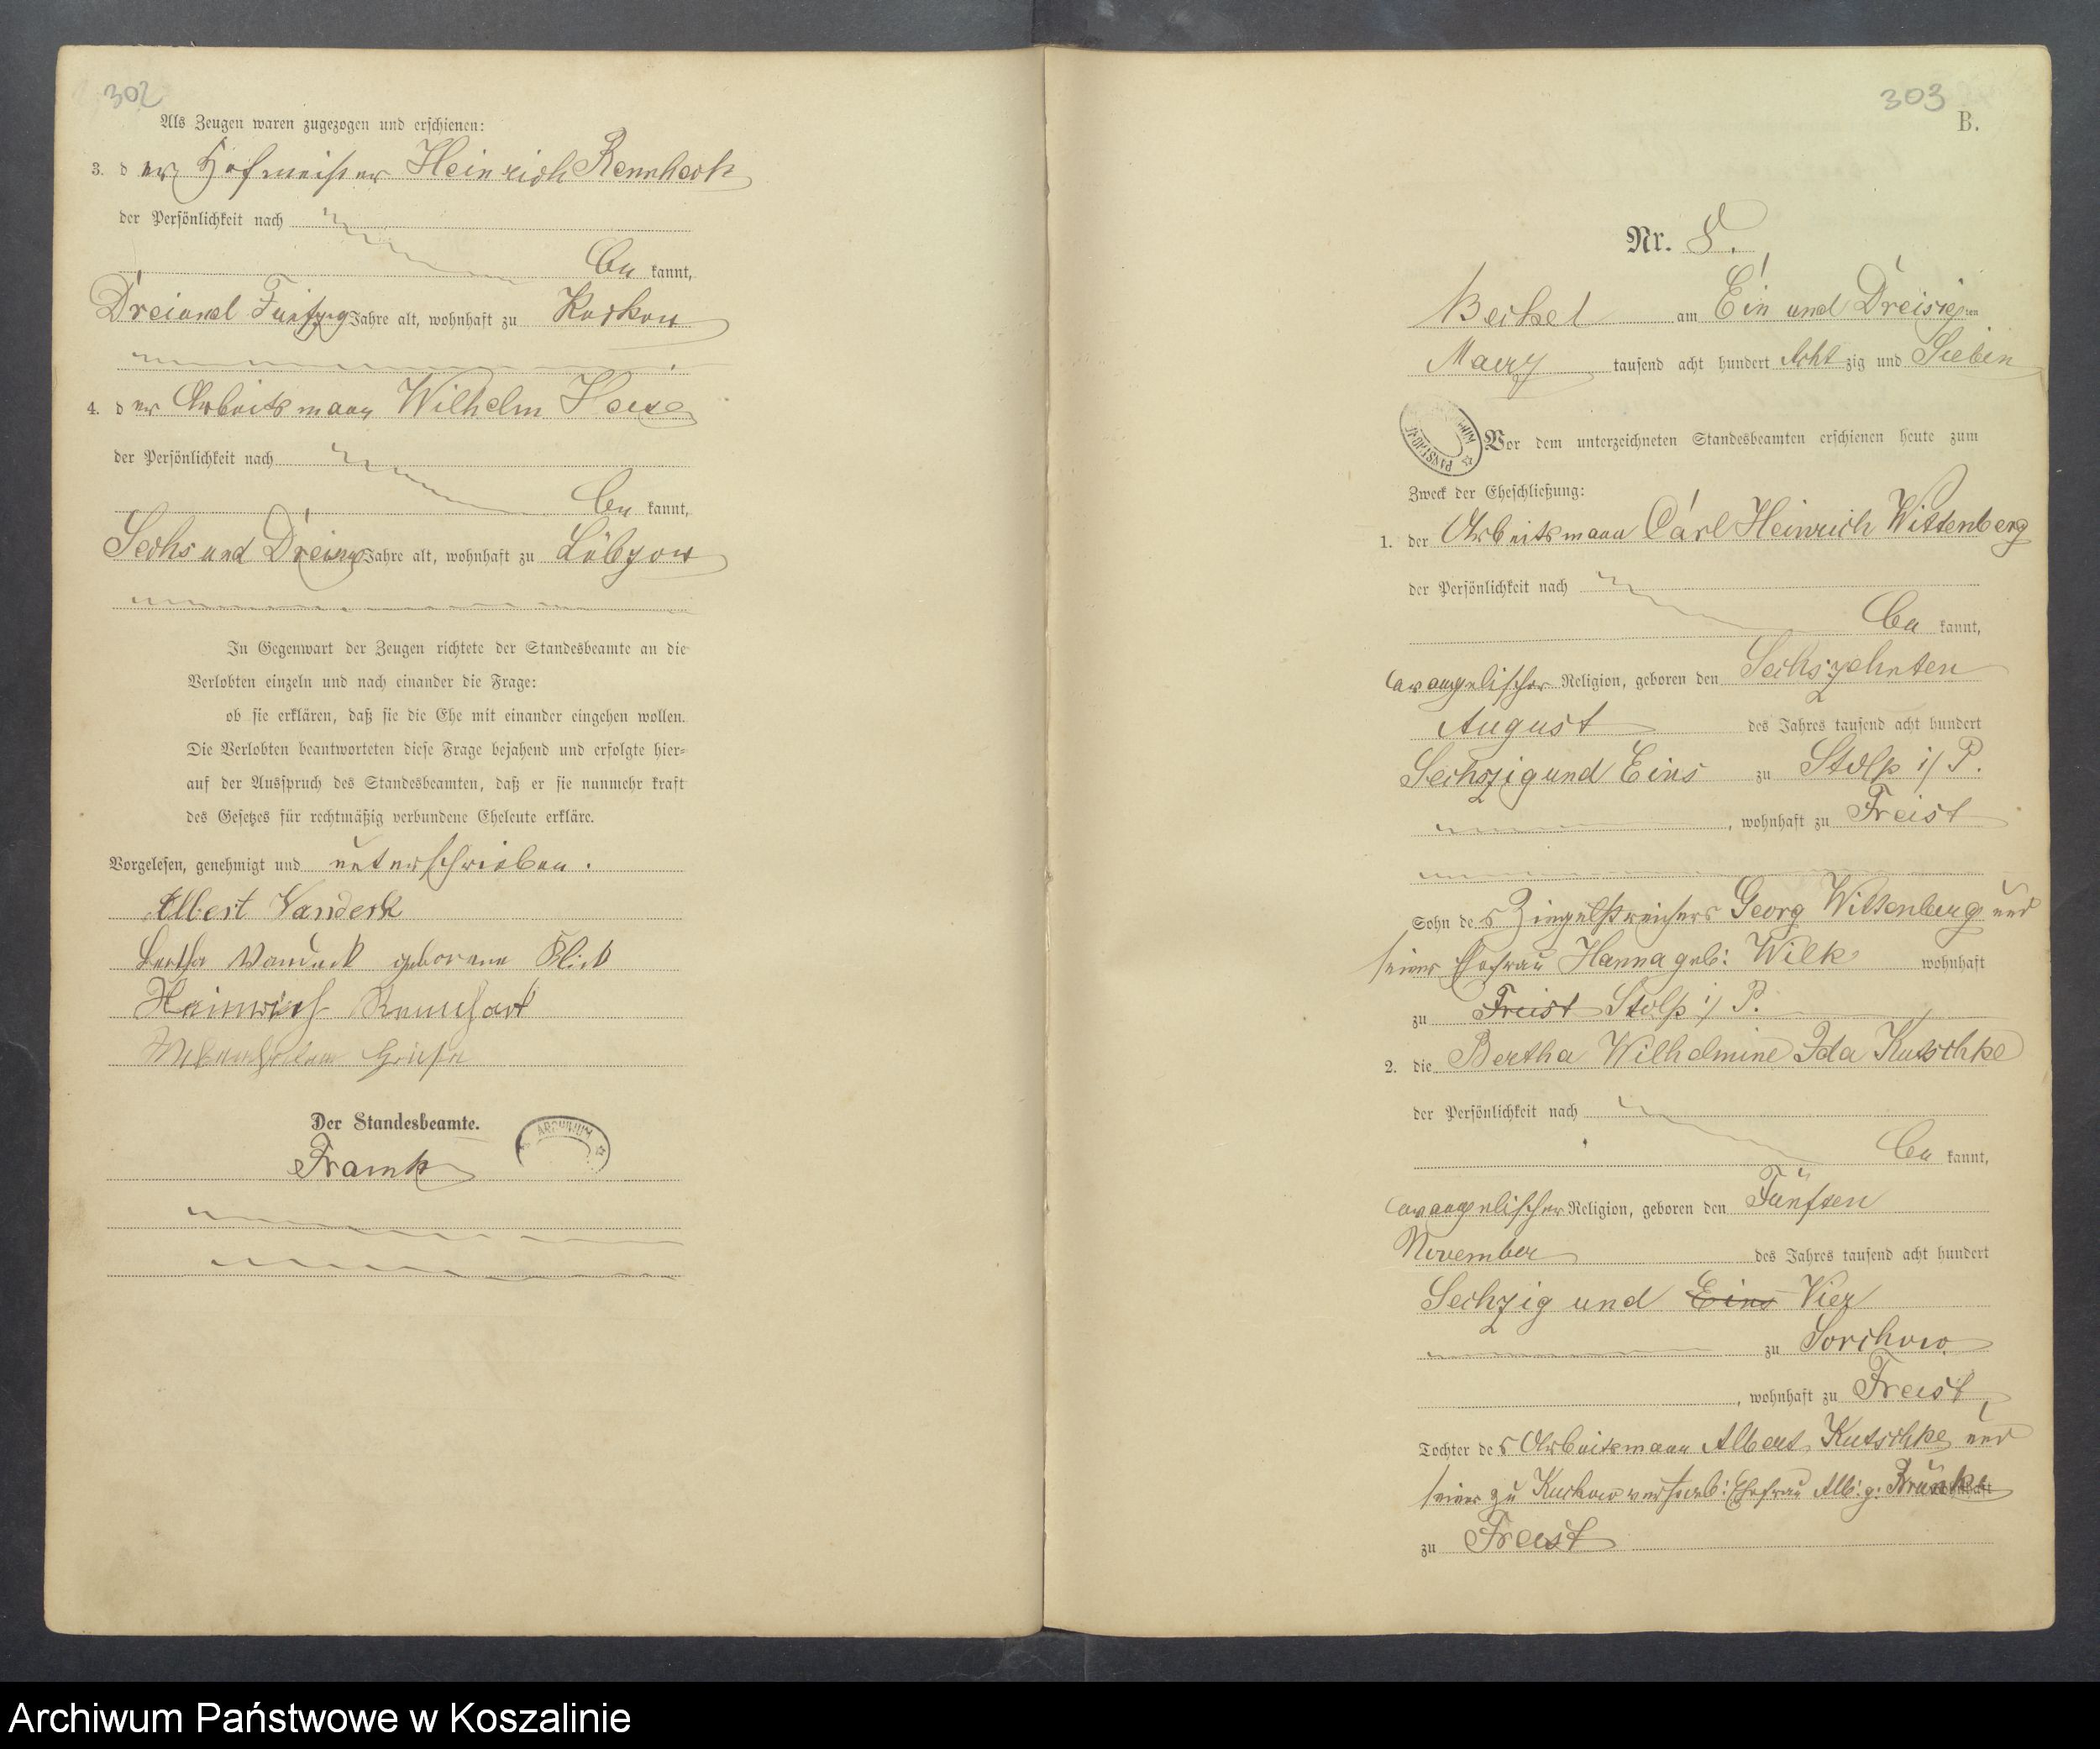 302
Als Zeugen waren zugezogen und erschienen:
3. der Hofmeister Heinrich
der Persönlichkeit nach
be kannt,
Dreiund Fünfzig Jahre alt, wohnhaft zu
4. der Arbeitsmann Wilhelm
der Persönlichkeit nach
be kannt,
Sechs und Dreißig Jahre alt, wohnhaft zu Lübzow
In Gegenwart der Zeugen richtete der Standesbeamte an die
Verlobten einzeln und nach einander die Frage:
ob sie erklären, daß sie die Ehe mit einander eingehen wollen.
Die Verlobten beantworteten diese Frage bejahend und erfolgte hier-
auf der Ausspruch des Standesbeamten, daß er sie nunmehr kraft
des Gesetzes für rechtmäßig verbundene Eheleute erkläre.
Vorgelesen, genehmigt und unterschrieben.
Albert
geborene
Heinrich
Der Standesbeamte.
ARCHIWUM
303
B.
Nr. 8.
am Ein und Dreisigsten
Maerz tausend acht hundert Acht zig und Sieben
Vor dem unterzeichneten Standesbeamten erschienen heute zum
Zweck der Eheschließung:
1. der Arbeitsmann Carl Heinrich Wittenberg
der Persönlichkeit nach
be kannt,
evangelischer Religion, geboren den Sechszehnten
August des Jahres tausend acht hundert
Sechszig und Eins zu Stolp i/P.
, wohnhaft zu Freist
Sohn des Ziegelstreichers Georg Wittenberg und
seiner Ehefrau Hanna geb: Wilk wohnhaft
zu Freist Stolp i/P.
2. die Bertha Wilhelmine Ida Kutschke
der Persönlichkeit nach
be kannt,
evangelischer Religion, geboren den Fünften
November des Jahres tausend acht hundert
Sechzig und Eins Vier
zu Sorchow
, wohnhaft zu Freist,
Tochter des Arbeitsmann Albert Kutschke und
seiner zu verstorb: Ehefrau Alb: g: wohnhaft
zu Freist
Archiwum Państwowe w Koszalinie